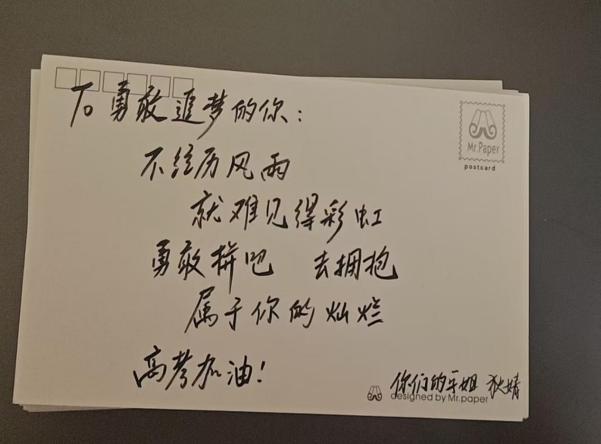 To 勇敢追梦的你：
Mr.Paper
postcard
不经历风雨
就难见得彩虹
勇敢拼吧 去拥抱
属于你的灿烂
高考加油！
你们的平姐 狄婧
designed by Mr.paper